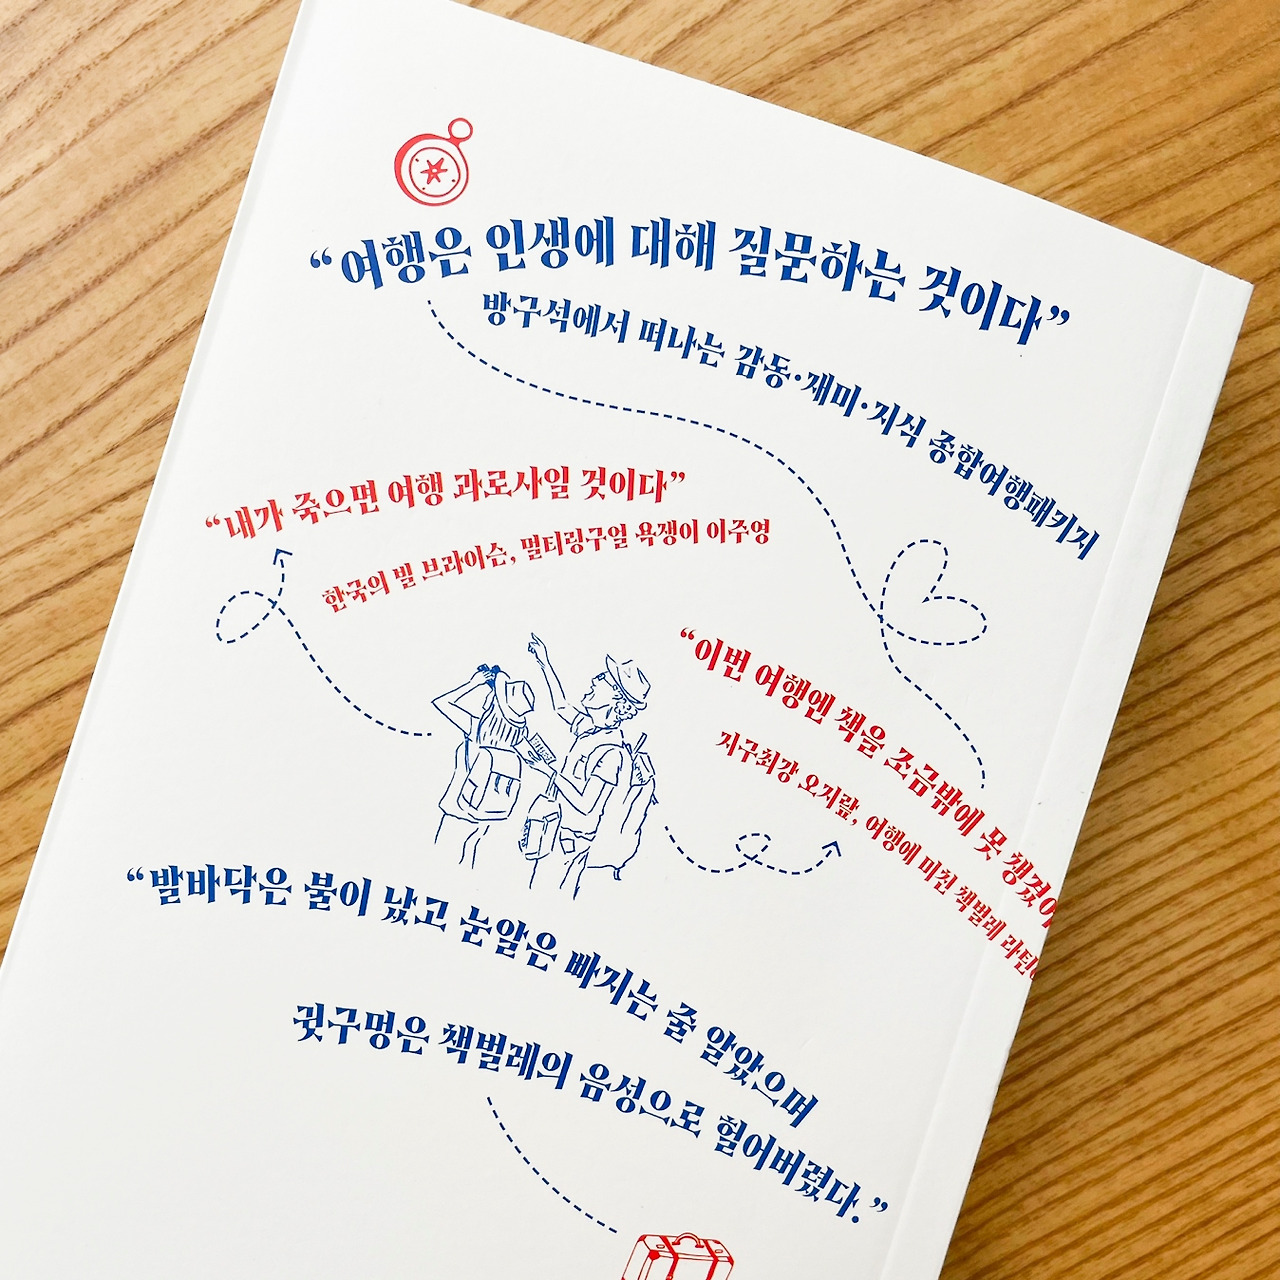 “여행은 인생에 대해 질문하는 것이다”
방구석에서 떠나는 감동·재미·지식 종합여행패키지
“내가 죽으면 여행 과로사일 것이다”
한국의 빌 브라이슨, 멀티링구얼 욕쟁이 이주영
“이번 여행엔 책을 조금밖에 못 챙겼어
지구최강 오지랖, 여행에 미친 책벌레
“발바닥은 불이 났고 눈알은 빠지는 줄 알았으며
귓구멍은 책벌레의 음성으로 헐어버렸다.”